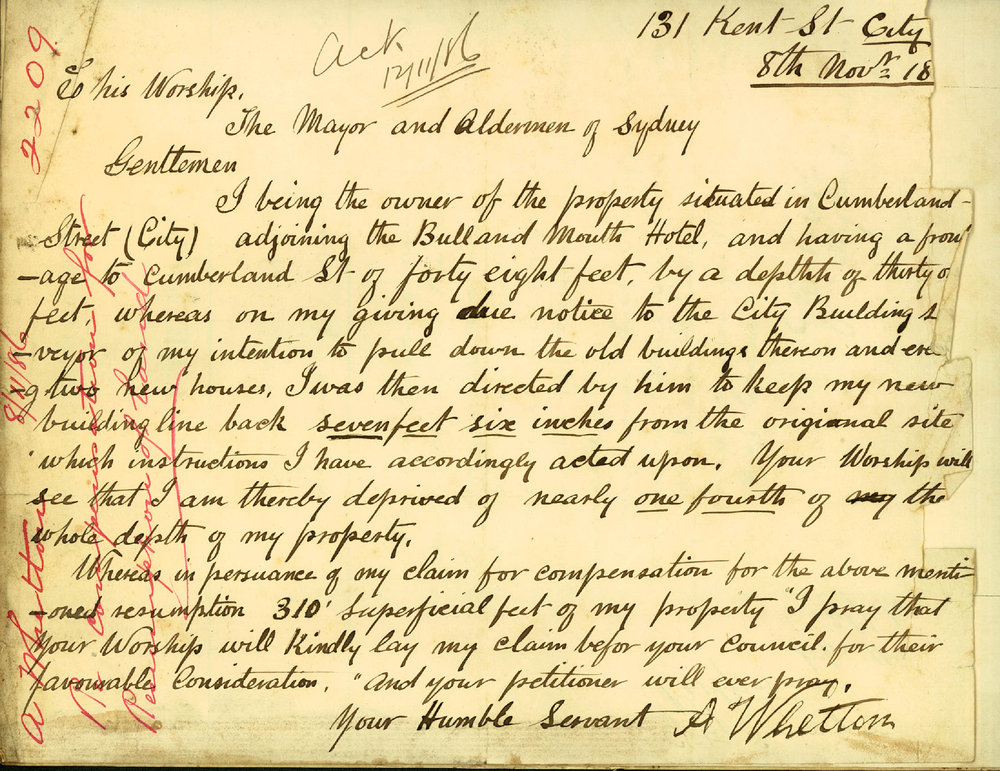 131 Kent St City
8th Novr. 18
Ack
12/11/86
2209
To his Worship.
The Mayor and Aldermen of Sydney
Genttemen
I being the owner of the property situated in Cumberland-
-Street (City) adjoining the Bull and Mouth Hotel, and having a fron
-age to Cumberland St of forty eight feet, by a depthth of thirty o
feet whereas on my giving due notice to the City Building S
-veyor of my intention to pull down the old buildings thereon and ere
-g two new houses, I was then directed by him to keep my new
building line back seven feet six inches from the origional site
"which instructions I have accordingly acted upon. Your Worship will
see that I am thereby deprived of nearly one fourth of my the
whole depth of my property.
Whereas in persuance of my claim for compensation for the above menti-
-oned resumption 310' superficial feet of my property "I pray that
Your Worship will kindly lay my claim befor your Council. for their
favourable Consideration, "And your petitioner will ever pray.
Your Humble Servant A Whetton
8/XI/86
A Whetton
Re compensation for
resumption of land